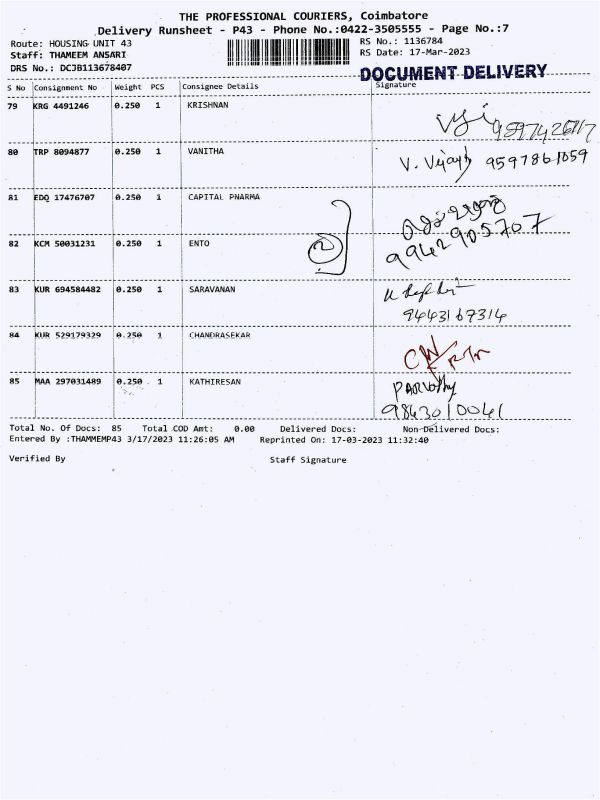 THE PROFESSIONAL COURIERS, Coimbatore
Delivery Runsheet - P43 - Phone No.:0422-3505555 - Page No.:7
Route: HOUSING UNIT 43 RS No.: 1136784
Staff: THAMEEM ANSARI RS Date: 17-Mar-2023
DRS No.: DCJB113678407
DOCUMENT DELIVERY
S No Consignment No Weight PCS Consignee Details Signature
79 KRG 4491246 0.250 1 KRISHNAN
80 TRP 8094877 0.250 1 VANITHA V. Vijay 9597861059
81 EDQ 17476707 0.250 1 CAPITAL PNARMA
9942905707
82 KCM 50031231 0.250 1 ENTO
83 KUR 694584482 0.250 1 SARAVANAN
9443167314
84 KUR 529179329 0.250 1 CHANDRASEKAR
85 MAA 297031489 0.250 1 KATHIRESAN Parvathy
9843010041
Total No. Of Docs: 85 Total COD Amt: 0.00 Delivered Docs: Non-Delivered Docs:
Entered By :THAMMEMP43 3/17/2023 11:26:05 AM Reprinted On: 17-03-2023 11:32:40
Verified By Staff Signature